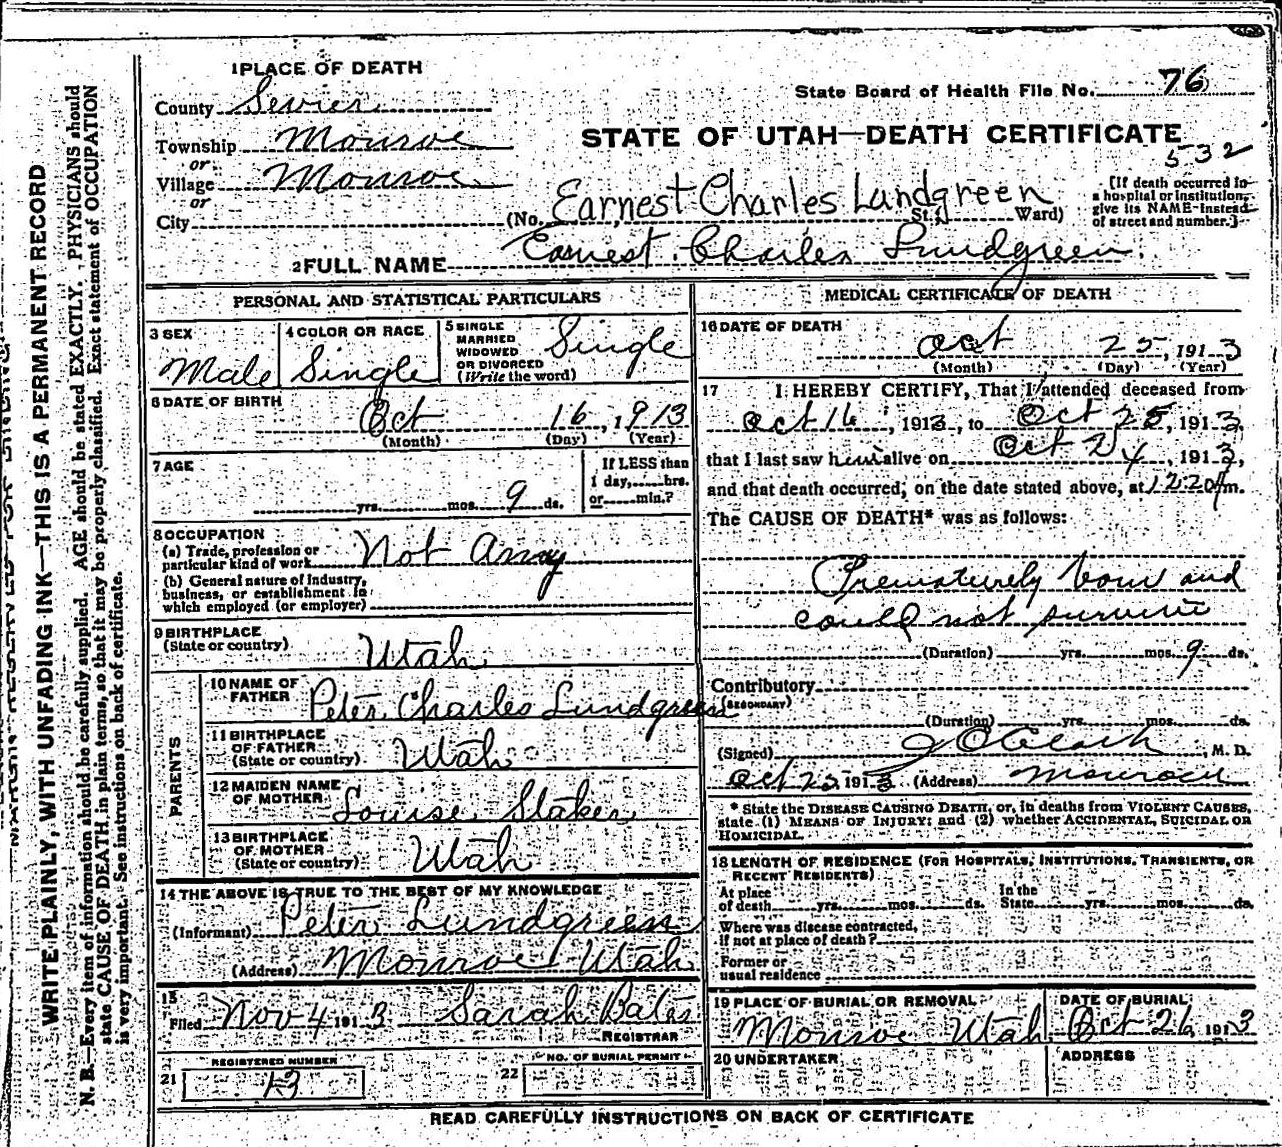 1 PLACE OF DEATH
County Sevier
State Board of Health File No. 76
Township Monroe
STATE OF UTAH—DEATH CERTIFICATE
532
or
Village Monroe
or
City
(No. Earnest Charles Lundgreen St.; Ward)
[If death occurred in
a hospital or institution,
give its NAME instead
of street and number.]
2 FULL NAME Earnest Charles Lundgreen
PERSONAL AND STATISTICAL PARTICULARS
3 SEX
Male
4 COLOR OR RACE
Single
5 SINGLE
MARRIED
WIDOWED
OR DIVORCED
(Write the word)
Single
6 DATE OF BIRTH
Oct 16, 1913
(Month) (Day) (Year)
7 AGE
yrs. mos. 9 ds.
If LESS than
1 day, hrs.
or min.?
8 OCCUPATION
(a) Trade, profession or
particular kind of work Not Any
(b) General nature of industry,
business, or establishment in
which employed (or employer)
9 BIRTHPLACE
(State or country) Utah
PARENTS
10 NAME OF
FATHER Peter Charles Lundgreen
11 BIRTHPLACE
OF FATHER
(State or country) Utah
12 MAIDEN NAME
OF MOTHER Louise Staker
13 BIRTHPLACE
OF MOTHER
(State or country) Utah
14 THE ABOVE IS TRUE TO THE BEST OF MY KNOWLEDGE
(Informant) Peter Lundgreen
(Address) Monroe Utah
15
Filed Nov 4 1913 Sarah Bates
REGISTRAR
REGISTERED NUMBER
21 13
NO. OF BURIAL PERMIT
22
MEDICAL CERTIFICATE OF DEATH
16 DATE OF DEATH
Oct 25, 1913
(Month) (Day) (Year)
17 I HEREBY CERTIFY, That I attended deceased from
Oct 16, 1913, to Oct 25, 1913,
that I last saw him alive on Oct 24, 1913,
and that death occurred, on the date stated above, at 12:20 m.
The CAUSE OF DEATH* was as follows:
Prematurely born and
could not survive
(Duration) yrs. mos. 9 ds.
Contributory
(SECONDARY)
(Duration) yrs. mos. ds.
(Signed) M. D.
Oct 25 1913 (Address)
* State the DISEASE CAUSING DEATH, or, in deaths from VIOLENT CAUSES,
state (1) MEANS OF INJURY; and (2) whether ACCIDENTAL, SUICIDAL OR
HOMICIDAL.
18 LENGTH OF RESIDENCE (FOR HOSPITALS, INSTITUTIONS, TRANSIENTS, OR
RECENT RESIDENTS)
At place
of death yrs. mos. ds.
In the
State yrs. mos. ds.
Where was disease contracted,
if not at place of death?
Former or
usual residence
19 PLACE OF BURIAL OR REMOVAL
Monroe Utah
DATE OF BURIAL
Oct 26 1913
20 UNDERTAKER
ADDRESS
READ CAREFULLY INSTRUCTIONS ON BACK OF CERTIFICATE
MARGIN RESERVED FOR BINDING
WRITE PLAINLY, WITH UNFADING INK—THIS IS A PERMANENT RECORD
N. B.—Every item of information should be carefully supplied. AGE should be stated EXACTLY. PHYSICIANS should
state CAUSE OF DEATH in plain terms, so that it may be properly classified. Exact statement of OCCUPATION
is very important. See instructions on back of certificate.